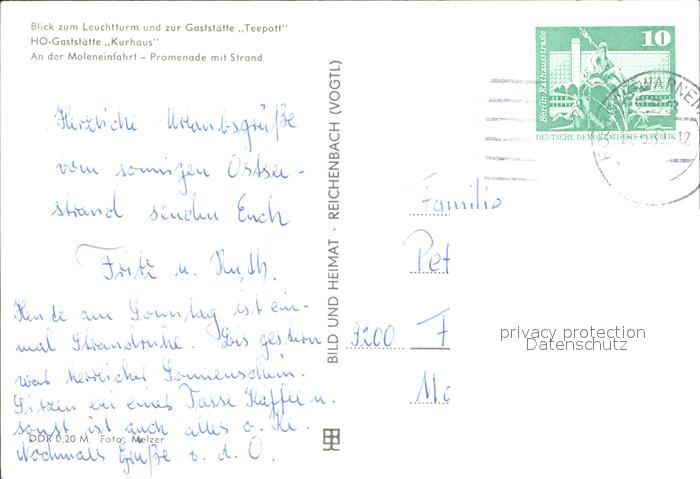 Blick zum Leuchtturm und zur Gaststätte „Teepott"
HO-Gaststätte „Kurhaus"
An der Moleneinfahrt – Promenade mit Strand
Herzliche Urlaubsgrüße
vom sonnigen Ostsee-
strand senden Euch
Fritz u. Ruth.
Heute am Sonntag ist ein-
mal Strandruhe. Bis gestern
war herrlicher Sonnenschein.
Sitzen bei einer Tasse Kaffee u.
sonst ist auch alles o. K.
Nochmals Grüße v. d. O.
DDR 0,20 M Foto: Melzer
BILD UND HEIMAT · REICHENBACH (VOGTL)
10
Berlin, Rathausstraße
DEUTSCHE DEMOKRATISCHE REPUBLIK
WARNEM
Familie
Pet
9200 F
privacy protection
Datenschutz